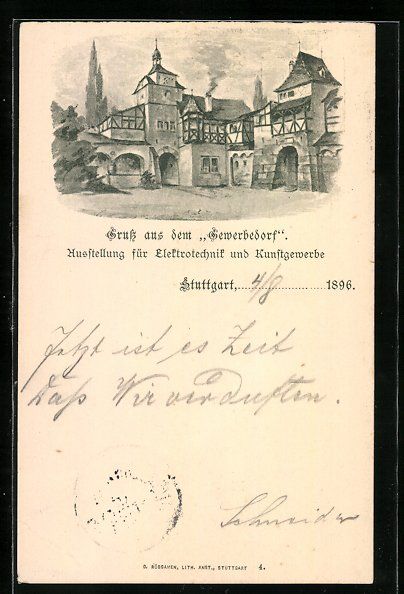 Gruß aus dem „Gewerbedorf“.
Ausstellung für Elektrotechnik und Kunstgewerbe
Stuttgart, 4/8 1896.
Jetzt ist es Zeit
Daß Wir verduften.
Schneider
G. RÖSGAMEN, LITH. ANST., STUTTGART 4.